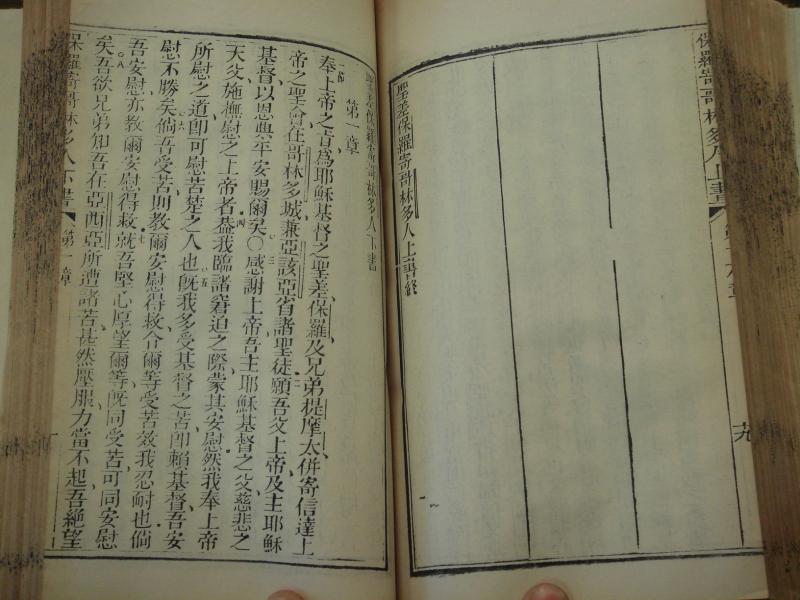 保羅寄哥林多人上書
十九
聖差保羅寄哥林多人上書終
聖差保羅寄哥林多人下書
第一章
奉上帝之旨為耶穌基督之聖差保羅及兄弟提摩太併寄信達上
帝之聖會在哥林多城兼亞該亞省諸聖徒願吾父上帝及主耶穌
基督以恩典平安賜爾矣〇感謝上帝吾主耶穌基督之父慈悲之
天父施撫慰之上帝者葢我臨諸窘迫之際蒙其安慰然我奉上帝
所慰之道卽可慰苦楚之人也旣我多受基督之苦卽賴基督吾安
慰不勝矣倘吾受苦則教爾安慰得救令爾等受苦效我忍耐也倘
吾安慰亦教爾安慰得救就吾堅心厚望爾等旣同受苦可同安慰
矣吾欲兄弟知吾在亞西亞所遭諸苦甚然壓服力當不起吾絕望
保羅寄哥林多人下書
第一章
一